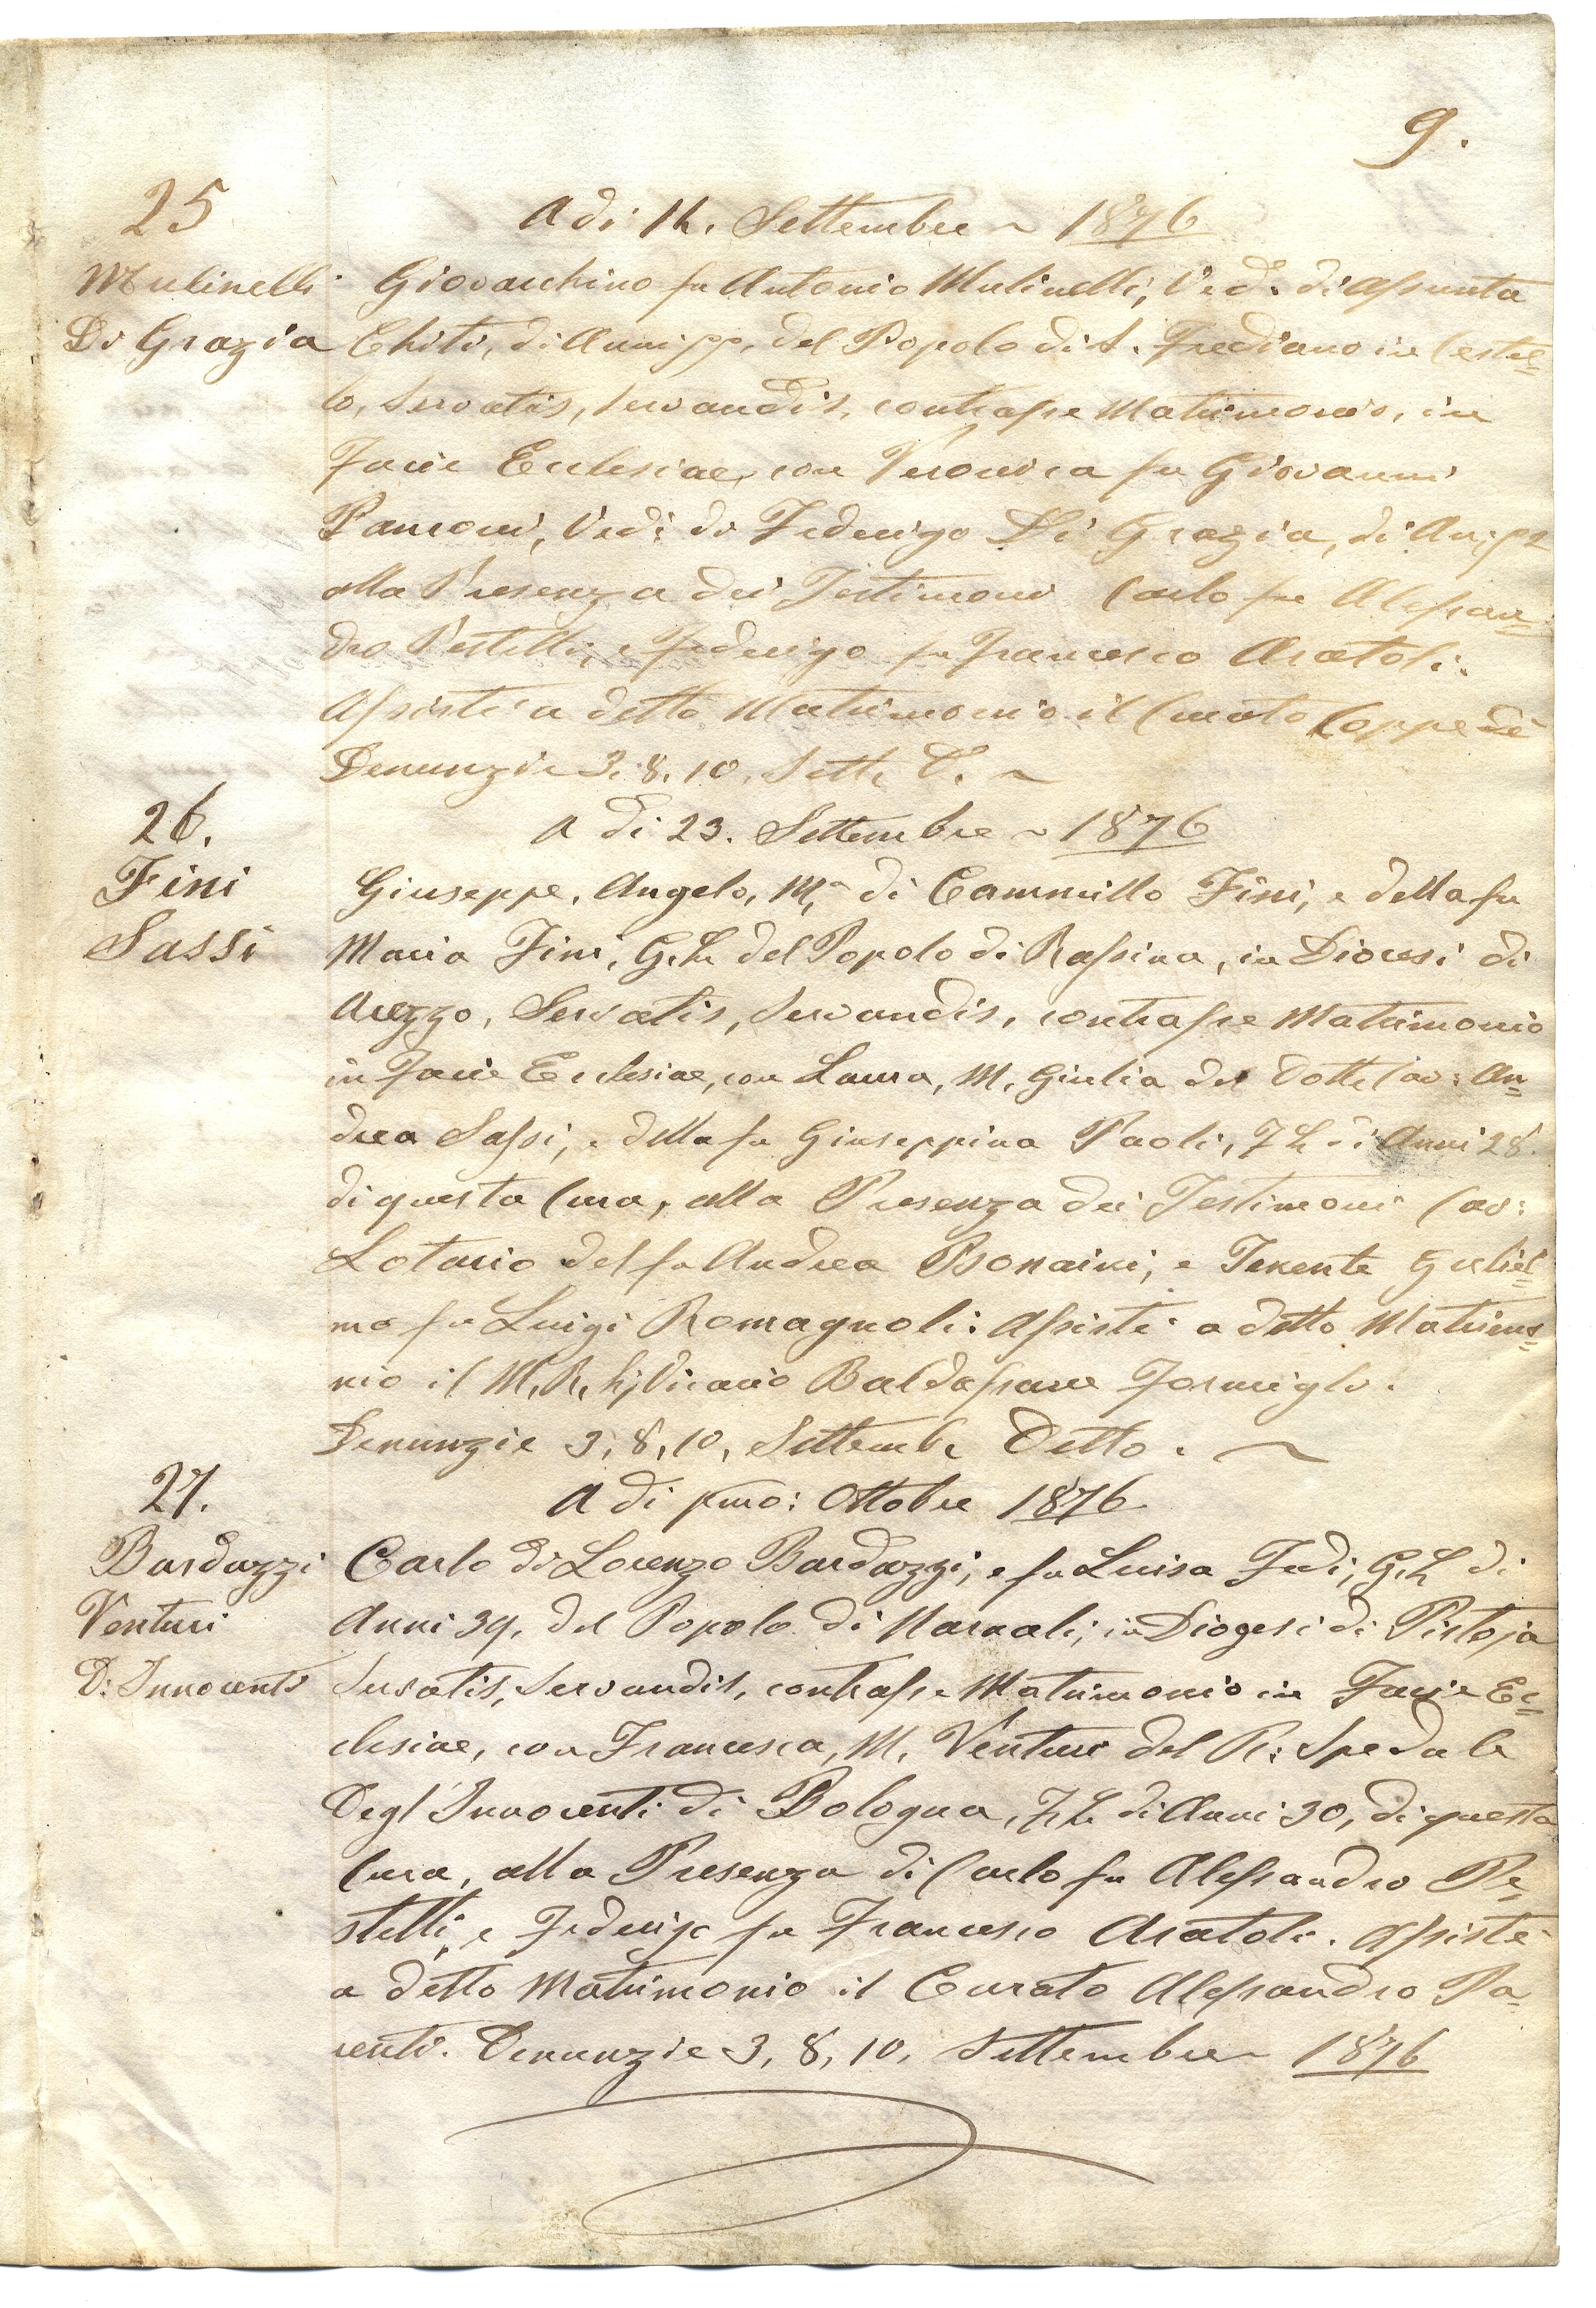 9.
25
A di 14. Settembre ~ 1876
Mulinelli
Di Grazia
Giovacchino fu Antonio Mulinelli, Ved: di Assunta
Chiti, di Anni 55, del Popolo di S. Frediano in Cestel=
lo, Servatis, servandis, contrasse Matrimonio, in
Facie Ecclesiae, con Veronica fu Giovanni
Panconi, Ved: di Federigo Di Grazia, di An: 52
alla Presenza dei Testimoni Carlo fu Alessan=
dro Pestelli, e Federigo fu Francesco Aratoli.
Assistè a detto Matrimonio il Curato Coppedè
Denunzie 3. 8. 10. Sette D. ~
26.
A di 23. Settembre ~ 1876
Fini
Sassi
Giuseppe, Angelo, M.a di Cammillo Fini, e della fu
Maria Fini, G. L. del Popolo di Rassina, in Diocesi di
Arezzo, Servatis, Servandis, contrasse Matrimonio
in Facie Ecclesiae, con Laura, M. Giulia del Dott. Cav: An=
drea Sassi, e della fu Giuseppina Paoli, F. L. di Anni 28.
di questa Cura, alla Presenza dei Testimoni Cav:
Lotario del fu Andrea Bonaini, e Tenente Guliel=
mo fu Luigi Romagnoli: Assistè a detto Matrimo=
nio il M. R. Vicario Baldassarre Formigli.
Denunzie 3, 8, 10, Settembe Detto. ~
27.
A di pmo: Ottobre 1876
Bardazzi
Venturi
D: Innocenti
Carlo di Lorenzo Bardazzi, e fu Luisa Fedi, G. L. di
Anni 39, del Popolo di Narnali, in Diogesi di Pistoja
Servatis, Servandis, contrasse Matrimonio in Facie Ec=
clesiae, con Francesca, M. Venturi del R: Spedale
Degl'Innocenti di Bologna, F. L. di Anni 30, di questa
Cura, alla Presenza di Carlo fu Alessandro Pe=
stelli, e Federigo fu Francesco Aratoli. Assistè
a detto Matrimonio il Curato Alessandro Pa=
renti. Denunzie 3, 8, 10, Settembre ~ 1876